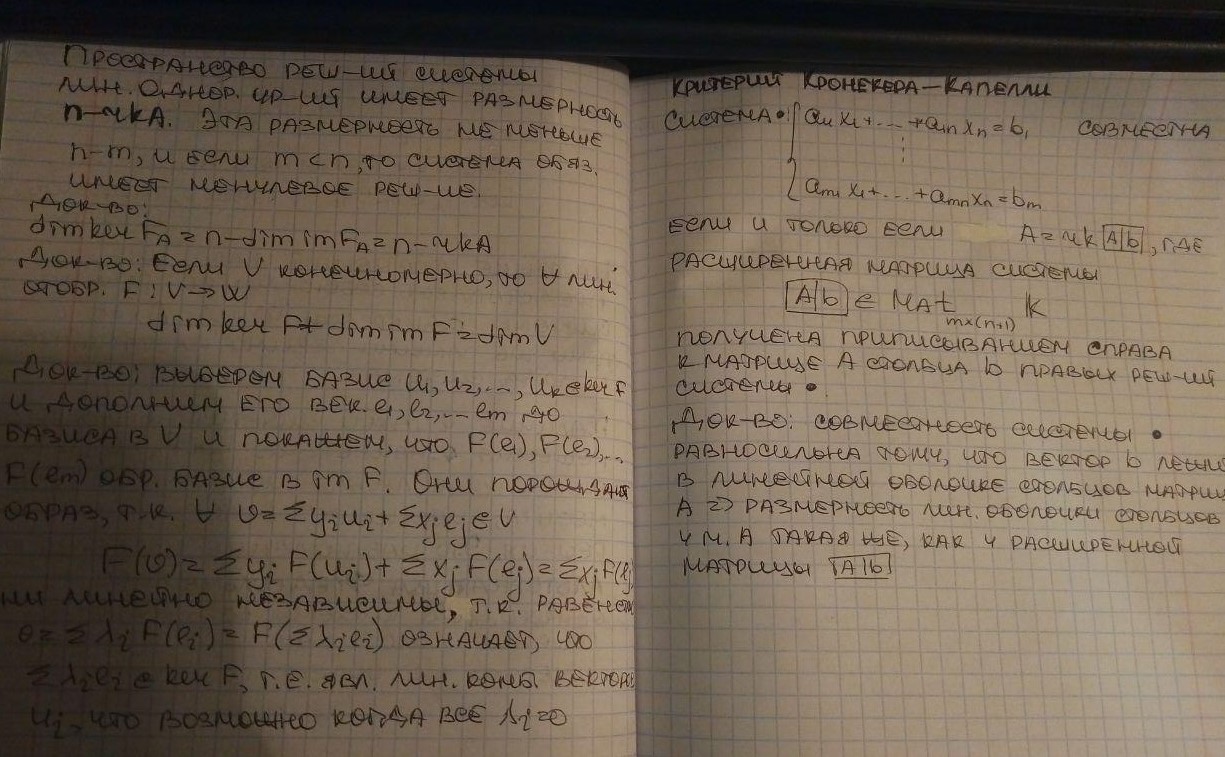 Пространство реш-ий системы
лин. однор. ур-ий имеет размерность
n-rkA. Эта размерность не меньше
n-m, и если m<n, то система обяз.
имеет ненулевое реш-ие.
Док-во:
dim ker F_A = n-dim im F_A = n-rkA
Док-во: Если V конечномерно, то ∀ лин.
отобр. F: V→W
dim ker F + dim im F = dim V
Док-во: выберем базис u₁, u₂, ..., uₖ ∈ ker F
и дополним его век. e₁, e₂, ... em до
базиса в V и покажем, что F(e₁), F(e₂),...
F(em) обр. базис в im F. Они порождают
образ, т.к. ∀ v = Σyᵢuᵢ + Σxⱼeⱼ ∈ V
F(v) = Σyᵢ F(uᵢ) + Σxⱼ F(eⱼ) = Σxⱼ F(eⱼ)
ни линейно независимы, т.к. равенств
0 = Σλᵢ F(eᵢ) = F(Σλᵢeᵢ) означает, что
Σλᵢeᵢ ∈ ker F, т.е. явл. лин. комб. векторов
uᵢ, что возможно когда все λᵢ=0
Критерий Кронекера-Капелли
Система • { a₁₁x₁+...+a₁ₙxₙ = b₁ совместна
⋮
aₘ₁x₁+...+aₘₙxₙ = bₘ
если и только если A = rk [A|b], где
расширенная матрица системы
[A|b] ∈ Mat m×(n+1) 𝕜
получена приписыванием справа
к матрице A столбца b правых реш-ий
системы •
Док-во: совместность системы •
равносильна тому, что вектор b лежит
в линейной оболочке столбцов матриц
A => размерность лин. оболочки столбцов
у м. A такая же, как у расширенной
матрицы [A|b]